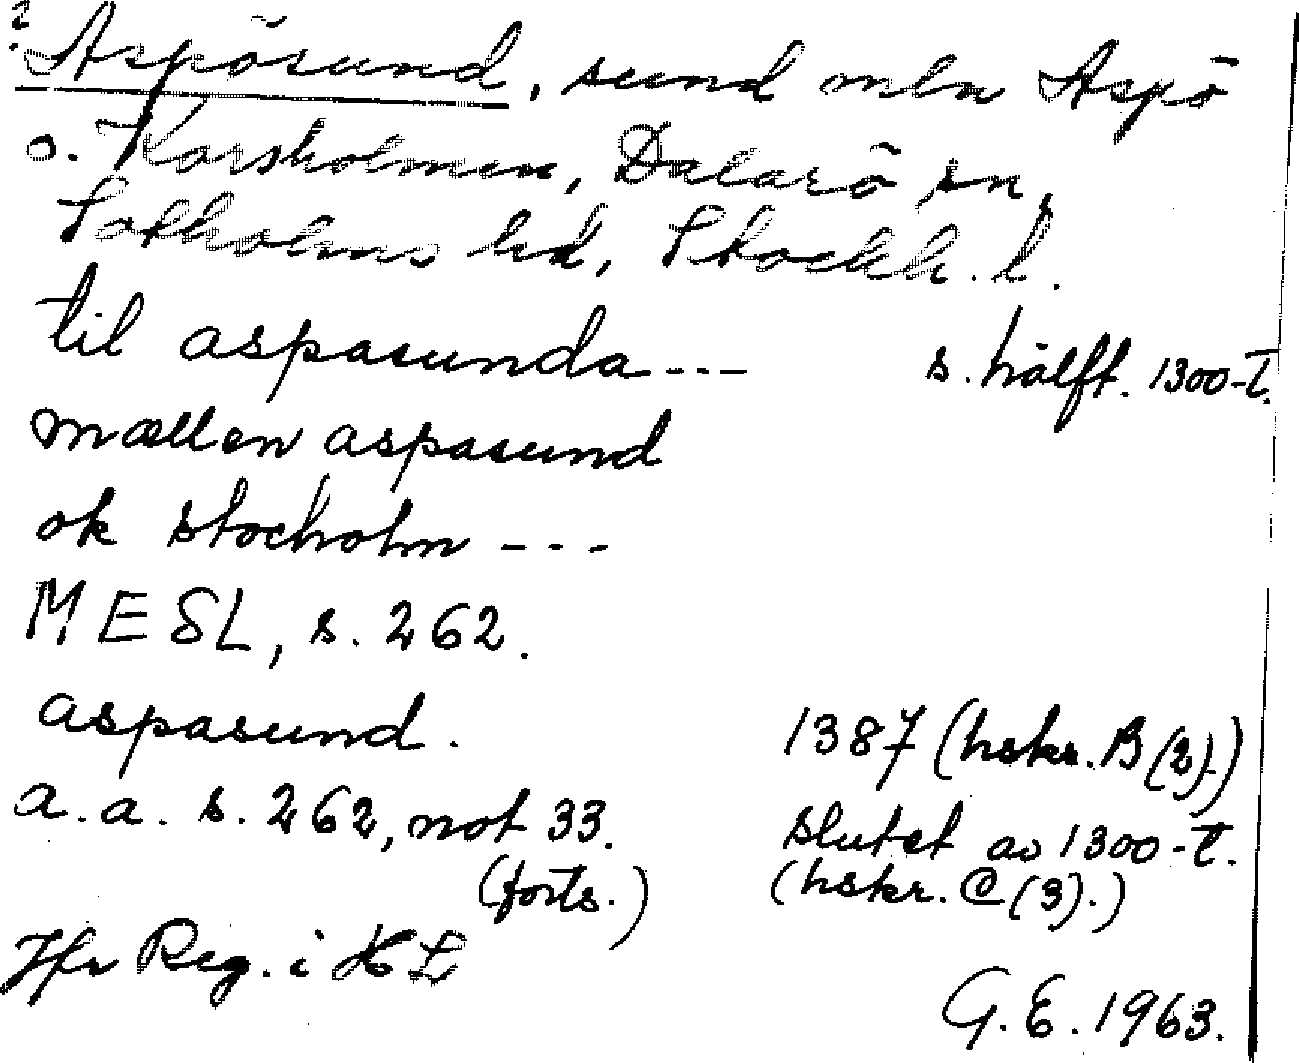 ? Aspösund, sund mln Aspö
o. Korsholmen, Dalarö sn,
Sotholms hd, Stockh. l.
til aspasunda --- s. hälft. 1300-t.
mællen aspasund
ok stocholm ---
MESL, s. 262.
aspasund. 1387 (hskr. B (2).)
a. a. s. 262, not 33. slutet av 1300-t.
(forts.) (hskr. C (3).)
Jfr Reg. i KL
G. E. 1963.